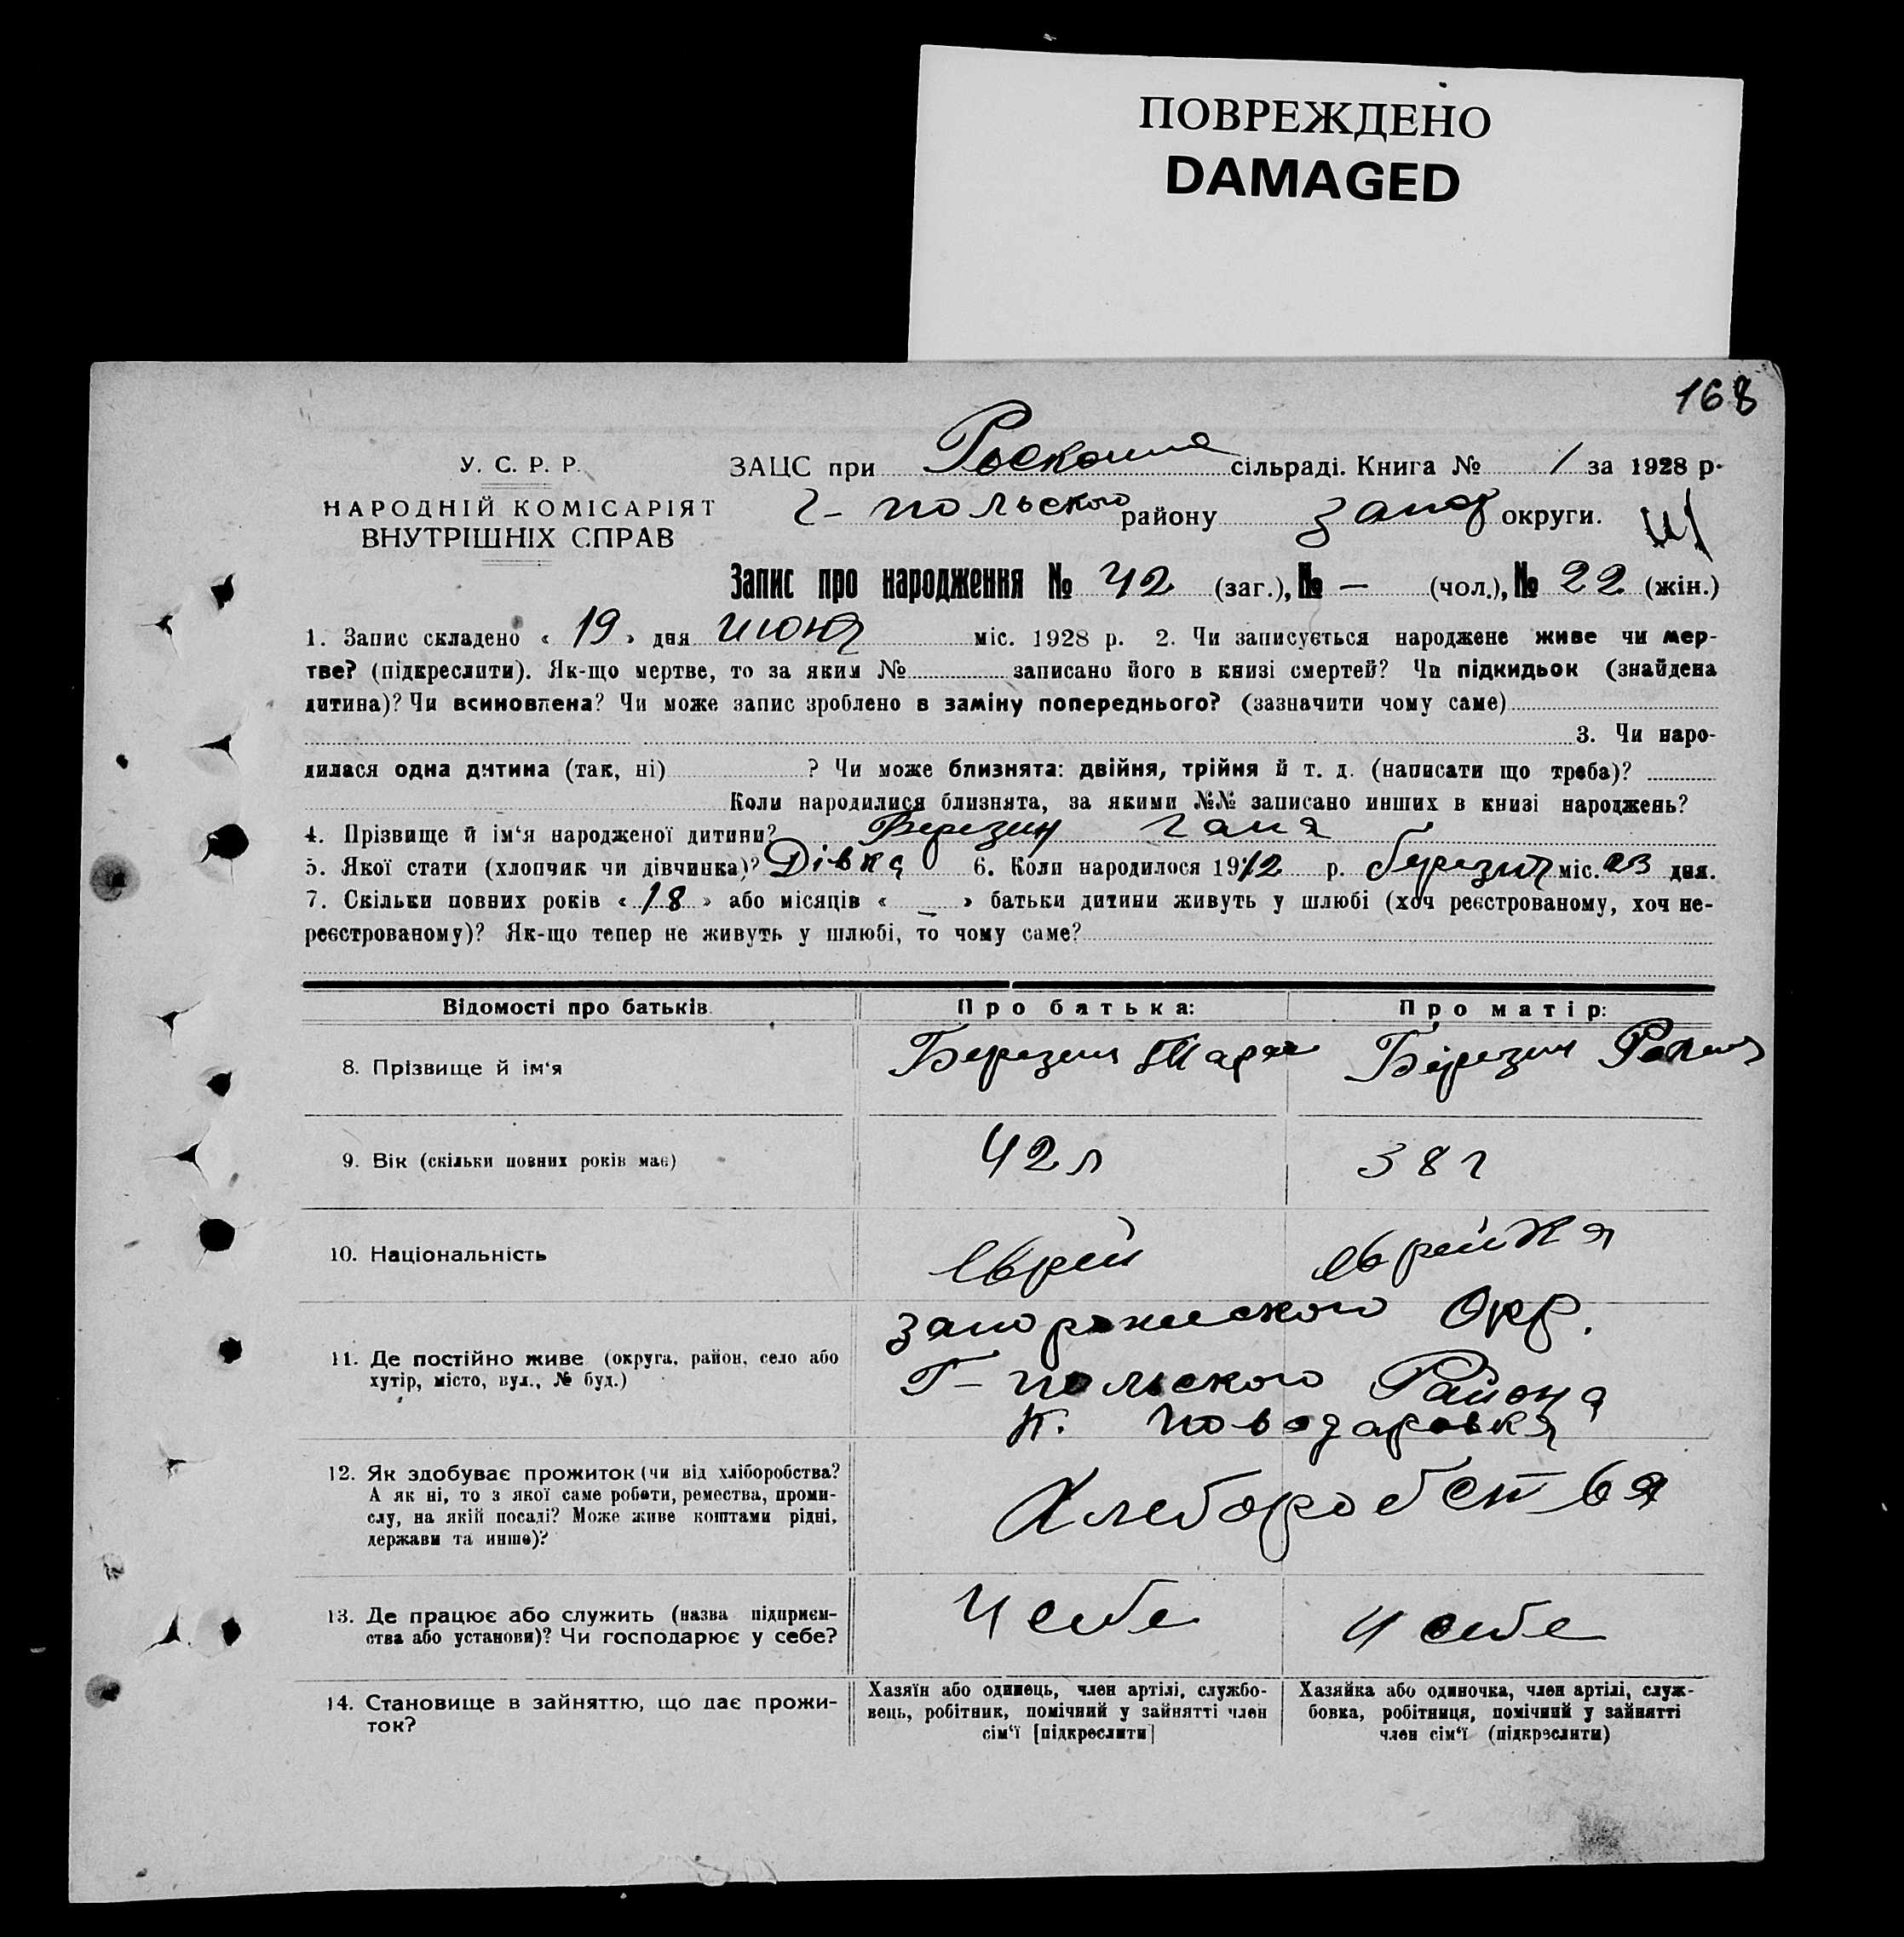 ПОВРЕЖДЕНО
DAMAGED
168
У. С. Р. Р.
НАРОДНІЙ КОМІСАРІЯТ
ВНУТРІШНІХ СПРАВ
ЗАЦС при сільраді. Книга № 1 за 1928 р.
Г-польского району Запор округи.
Запис про народження № 42 (заг.), № — (чол.), № 22 (жін.)
1. Запис складено « 19 » дня июня міс. 1928 р. 2. Чи записується народжене живе чи мер-
тве? (підкреслити). Як-що мертве, то за яким № записано його в книзі смертей? Чи підкидьок (знайдена
дитина)? Чи всиновлена? Чи може запис зроблено в заміну попереднього? (зазначити чому саме)
3. Чи наро-
дилася одна дитина (так, ні) ? Чи може близнята: двійня, трійня й т. д. (написати що треба)?
Коли народилися близнята, за якими №№ записано инших в книзі народжень?
4. Прізвище й ім‘я народженої дитини? Березин Ганя
5. Якої стати (хлопчик чи дівчинка)? Дівка 6. Коли народилося 1912 р. березня міс. 23 дня.
7. Скільки повних років « 18 » або місяців « — » батьки дитини живуть у шлюбі (хоч реєстрованому, хоч не-
реєстрованому)? Як-що тепер не живуть у шлюбі, то чому саме?
Відомості про батьків Про батька: Про матір:
8. Прізвище й ім‘я Березин Березин
9. Вік (скільки повних років має) 42 л 38 г
10. Національність Еврей еврейка
запорожского Окр.
11. Де постійно живе (округа, район, село або
хутір, місто, вул., № буд.) Г-польского Района
к. Новодаровка
12. Як здобуває прожиток (чи від хліборобства?
А як ні, то з якої саме роботи, ремества, проми-
слу, на якій посаді? Може живе коштами рідні,
держави та инше)? Хлеборобства
13. Де працює або служить (назва підприєм-
ства або установи)? Чи господарює у себе? У себе У себе
14. Становище в зайняттю, що дає прожи-
ток?
Хазяїн або одинець, член артілі, службо-
вець, робітник, помічний у зайнятті член
сім‘ї [підкреслити]
Хазяйка або одиночка, член артілі, служ-
бовка, робітниця, помічний у зайнятті
член сім‘ї (підкреслити)